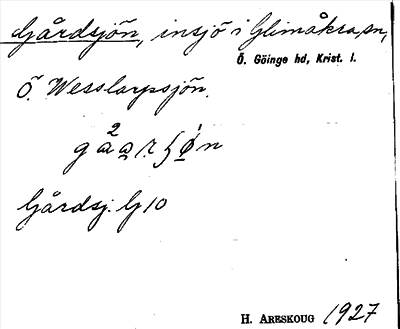 Gårdsjön, insjö i Glimåkra sn,
Ö. Göinge hd, Krist. l.
Ö. Wesslarpssjön.
Gårdsj. Gj 10
H. ARESKOUG 1927